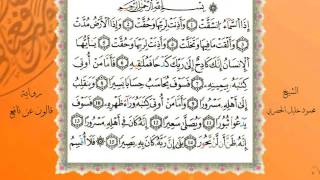 بِسْمِ اللَّهِ الرَّحْمَٰنِ الرَّحِيمِ
إِذَا السَّمَاءُ انشَقَّتْ ١ وَأَذِنَتْ لِرَبِّهَا وَحُقَّتْ ٢ وَإِذَا الْأَرْضُ مُدَّتْ
٣ وَأَلْقَتْ مَا فِيهَا وَتَخَلَّتْ ٤ وَأَذِنَتْ لِرَبِّهَا وَحُقَّتْ ٥ يَٰأَيُّهَا
الْإِنسَٰنُ إِنَّكَ كَادِحٌ إِلَىٰ رَبِّكَ كَدْحًا فَمُلَٰقِيهِ ٦ فَأَمَّا مَنْ أُوتِيَ
كِتَٰبَهُ بِيَمِينِهِ ٧ فَسَوْفَ يُحَاسَبُ حِسَابًا يَسِيرًا ٨ وَيَنقَلِبُ
إِلَىٰ أَهْلِهِ مَسْرُورًا ٩ وَأَمَّا مَنْ أُوتِيَ كِتَٰبَهُ وَرَاءَ ظَهْرِهِ ١٠ فَسَوْفَ
يَدْعُوا ثُبُورًا ١١ وَيُصَلَّىٰ سَعِيرًا ١٢ إِنَّهُ كَانَ فِي أَهْلِهِ مَسْرُورًا ١٣
إِنَّهُ ظَنَّ أَن لَّن يَحُورَ ١٤ بَلَىٰ إِنَّ رَبَّهُ كَانَ بِهِ بَصِيرًا ١٥ فَلَا أُقْسِمُ
الشيخ
محمود خليل الحصري
رواية
قالون عن نافع